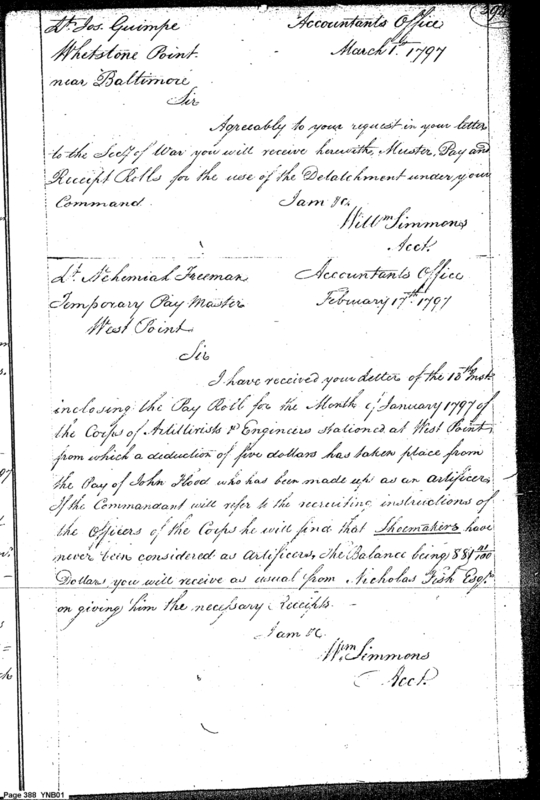 394
Lt. Jos. Guimpe Accountants Office
Whetstone Point March 1st 1797
near Baltimore
Sir
Agreeably to your request in your letter
to the Secy of War you will receive herewith, Muster, Pay and
Receipt Rolls for the use of the Detatchment under your
Command. I am &c.
Willm Simmons
Acct.
Lt. Nehemiah Freeman Accountants Office
Temporary Pay Master February 17th 1797
West Point
Sir
I have received your Letter of the Inst.
inclosing the Pay Roll for the Month of January 1797 of
the Corps of Artillirists & Engineers stationed at West Point,
from which a deduction of five dollars has taken place from
the Pay of John Hood who has been made up as an artificer,
If the Commandant will refer to the recruiting instructions of
the Officers of the Corps he will find that Shoemakers have
never been considered as Artificers, The Balance being
Dollars you will receive as usual from Nicholas Fish Esqr.
on giving him the necessary Receipts.
I am &c
Wm Simmons
Acct.
Page 388 YNB01